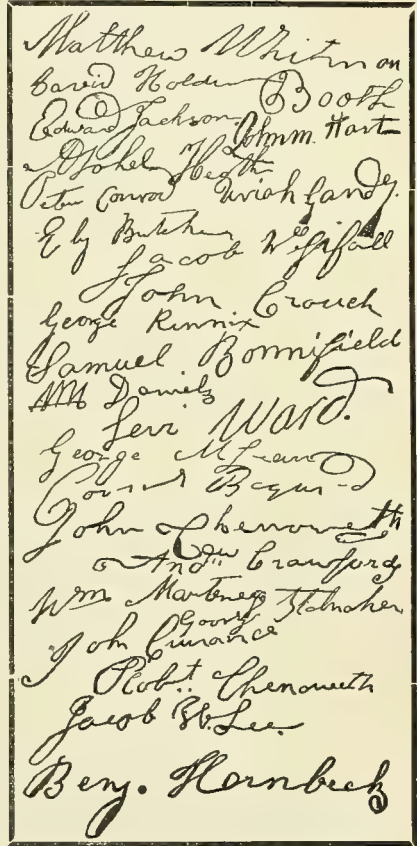 Matthew Whitman
David Holder Booth
Edward Jackson John M. Hart
Asahel Heath
Peter Conrod Uriah Gandy.
Ely Butcher
Jacob Westfall
John Crouch
George Rennix
Samuel Bonnifield
Wm Daniels
Levi Ward.
George McLean
John Chenoweth
And.w Crawford
Wm Marteney
George Stalnaker
John Currance
Robt. Chenoweth
Jacob W. Lee.
Benj. Hornbeck